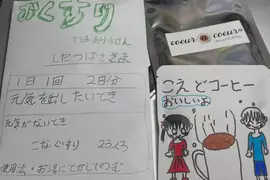 おくすり
ではありません
したつばさ さま
1日1回 2日分
元気を出したいとき
元気がないとき
こなぐすり 2ふくろ
使用法・お湯にとかしてのむ
coeur coeur
こえどコーヒー
おいしいよ